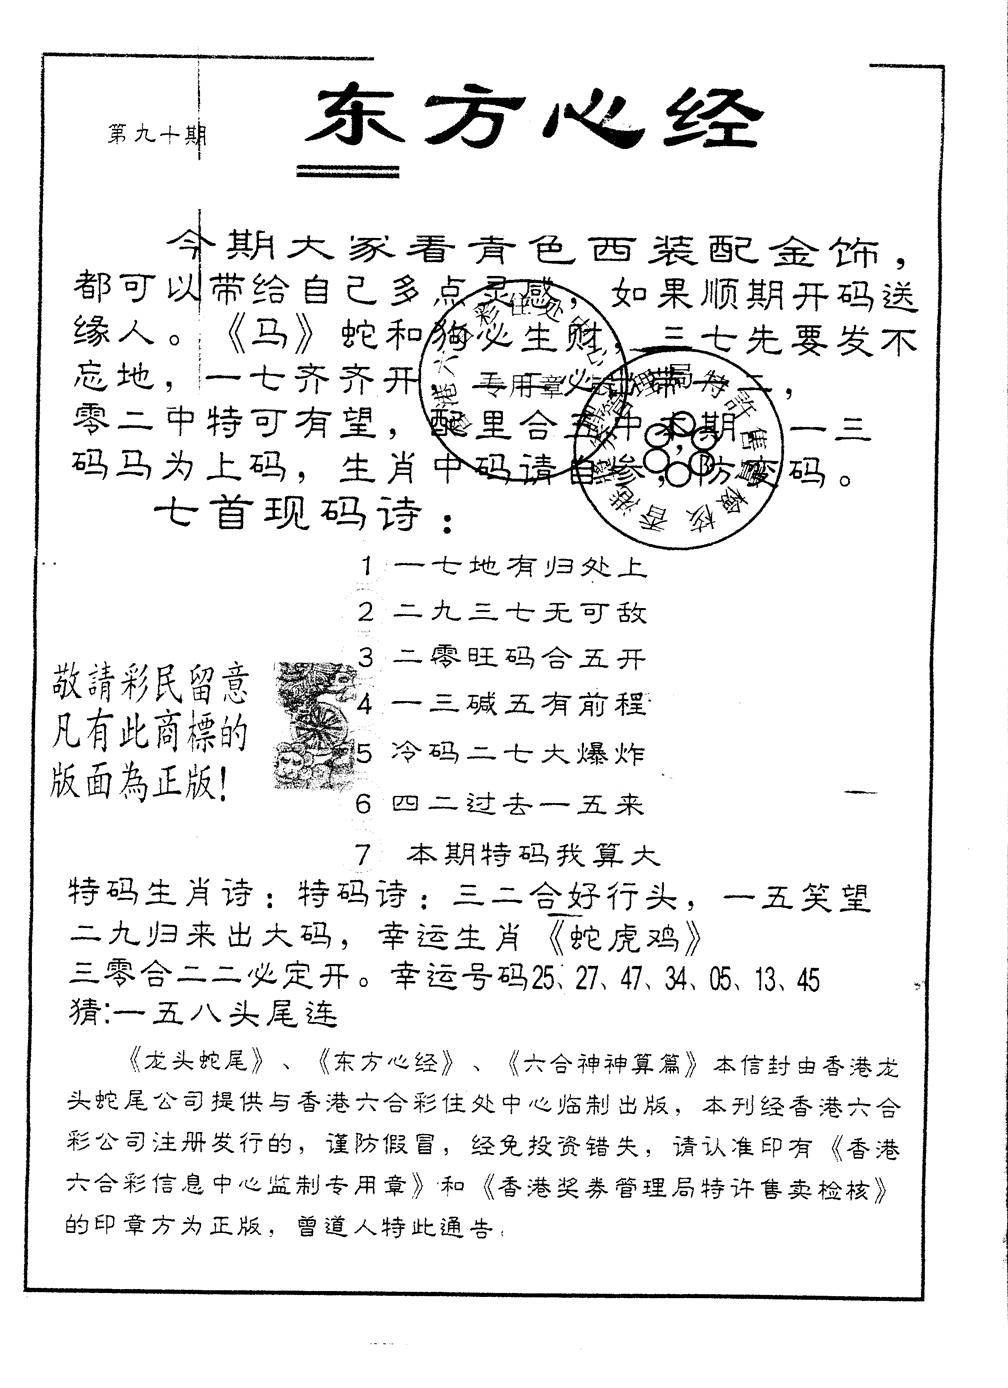 东方心经
第九十期
今期大家看青色西装配金饰，
都可以带给自己多点灵感，如果顺期开码送
缘人。《马》蛇和狗必生财，三七先要发不
忘地，一七齐齐开，二二必出带一二，
零二中特可有望，配里合五中本期，一三
码马为上码，生肖中码请自参，防 码。
七首现码诗：
1 一七地有归处上
2 二九三七无可敌
3 二零旺码合五开
4 一三碱五有前程
5 冷码二七大爆炸
6 四二过去一五来
7 本期特码我算大
敬請彩民留意
凡有此商標的
版面為正版！
特码生肖诗：特码诗：三二合好行头，一五笑望
二九归来出大码，幸运生肖《蛇虎鸡》
三零合二二必定开。幸运号码25、27、47、34、05、13、45
猜:一五八头尾连
《龙头蛇尾》、《东方心经》、《六合神神算篇》本信封由香港龙
头蛇尾公司提供与香港六合彩住处中心临制出版，本刊经香港六合
彩公司注册发行的，谨防假冒，经免投资错失，请认准印有《香港
六合彩信息中心监制专用章》和《香港奖券管理局特许售卖检核》
的印章方为正版，曾道人特此通告。
香港六合彩住处中心
专用章
香港獎券管理局特許售賣檢核